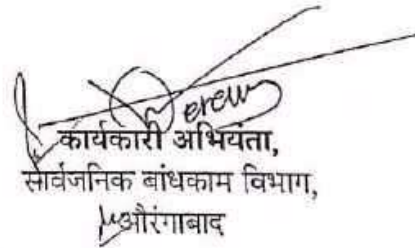 कार्यकारी अभियंता,
सार्वजनिक बांधकाम विभाग,
औरंगाबाद